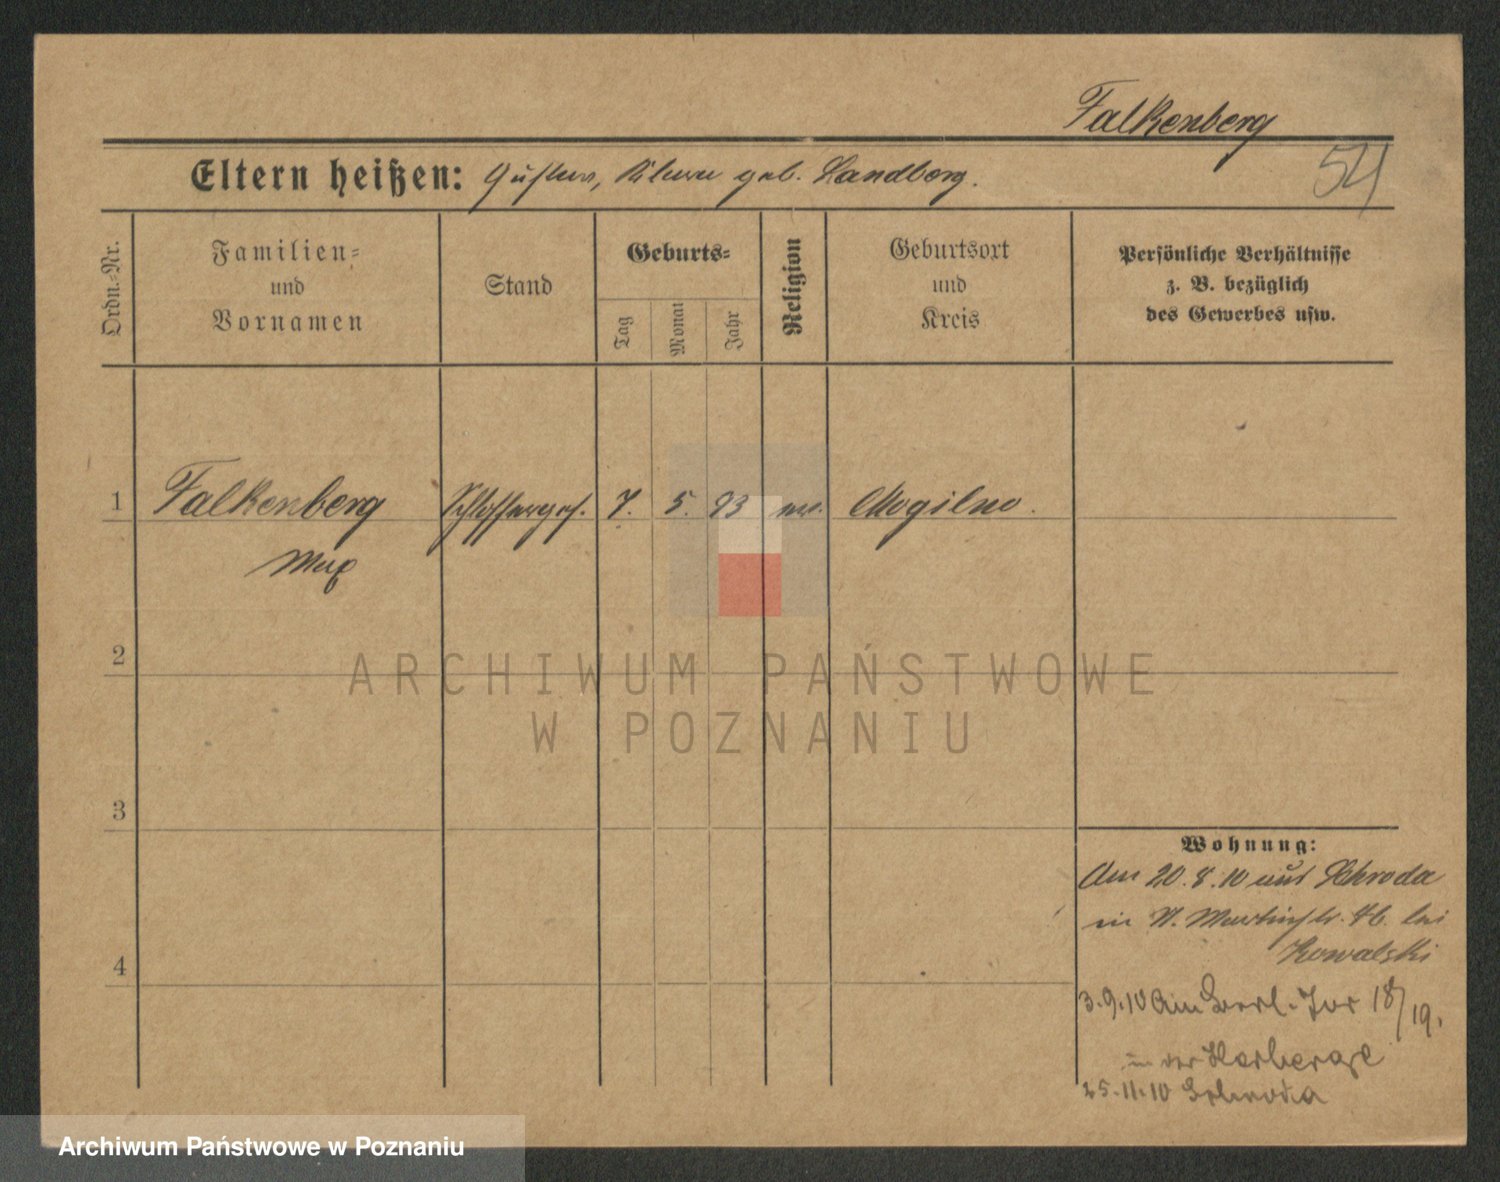 Falkenberg
54
Eltern heißen: Gustav, geb. Landberg.
Ordn.-Nr.
Familien-
und
Vornamen
Stand
Geburts-
Tag
Monat
Jahr
Religion
Geburtsort
und
Kreis
Persönliche Verhältnisse
z. B. bezüglich
des Gewerbes usw.
1 Falkenberg Schlosserges. 7. 5. 93 ev. Mogilno.
Max
2
3
4
ARCHIWUM PAŃSTWOWE
W POZNANIU
Wohnung:
Am 20.8.10 aus Schroda
in St. Martinstr. bei
Kowalski
3.9.10 Am Berl. Tor 18/19.
in der Herberge
25.11.10 Schroda
Archiwum Państwowe w Poznaniu